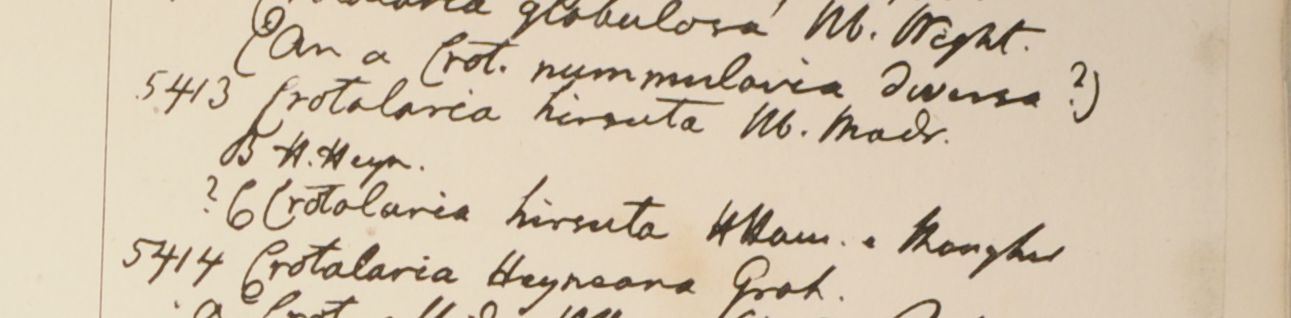 Crotalaria globulosa Hb. Wight.
(An a Crot. nummularia diversa ?)
5413 Crotalaria hirsuta Hb. Madr.
B H. Heyn.
? C Crotalaria hirsuta HHam. e Monghur
5414 Crotalaria Heyneana Grah.
Crot.